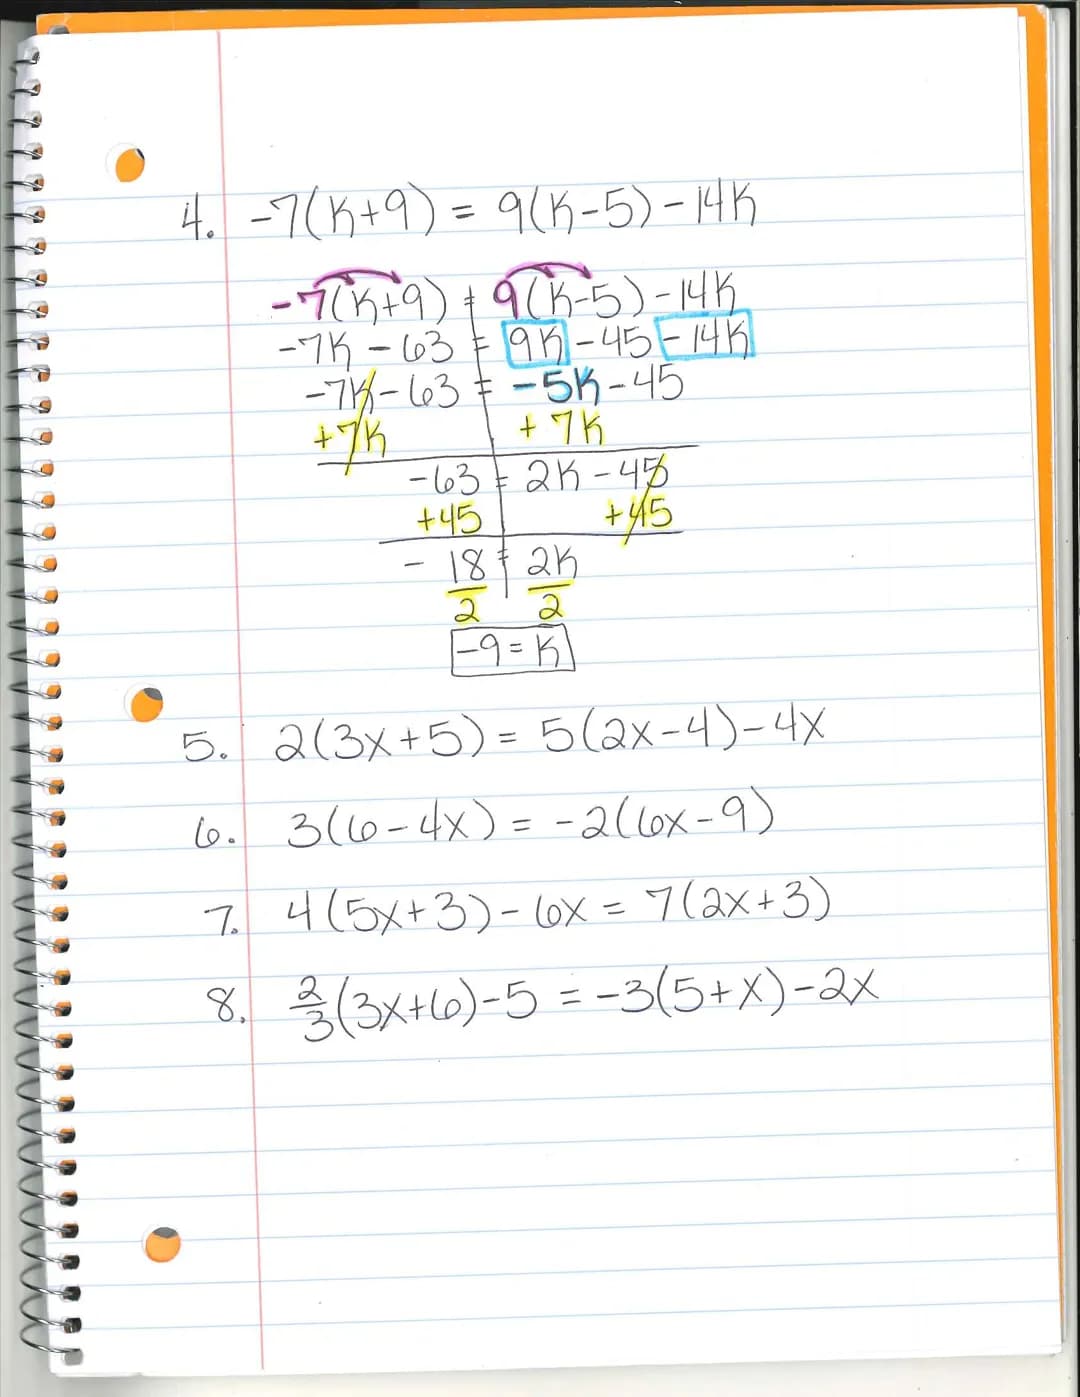 4. -7(K+9) = 9(K-5)-14K
-7(K+9) = 9(K-5)-14K
-7K - 63 = 9K - 45 - 14K
-7K - 63 = -5K - 45
+7K +7K
-63 = 2K - 45
+45 +45
-18 = 2K
2 2
-9 = K
5. 2(3x+5) = 5(2x-4)-4x
6. 3(6-4x) = -2(6x-9)
7. 4(5x+3)-6x = 7(2x+3)
8. 2/3(3x+6)-5 = -3(5+x)-2x